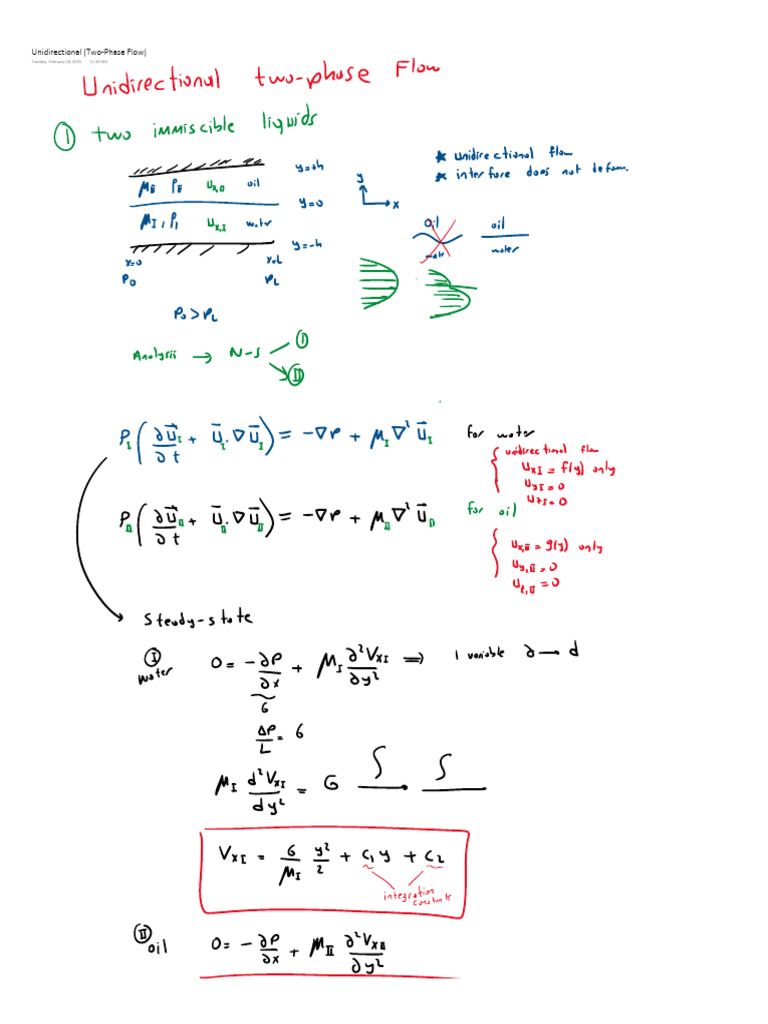 Unidirectional (Two-Phase Flow)
Tuesday, February 18, 2025 11:40 AM
Unidirectional two-phase Flow
① two immiscible liquids
y=+h
μ_II ρ_II u_x,o oil
y=0
μ_I, ρ_I u_x,I water
y=-h
x=0 x=L
P_0 P_L
P_0 > P_L
y
x
* unidirectional flow
* interface does not deform.
oil oil
water water
Analysis → N-S
Ⓘ
Ⓘ Ⓘ
ρ_I (∂ū_I/∂t + ū_I · ∇ū_I) = -∇P + μ_I ∇² ū_I for water
unidirectional flow
u_xI = f(y) only
u_yI = 0
u_zI = 0
ρ_II (∂ū_II/∂t + ū_II · ∇ū_II) = -∇P + μ_II ∇² ū_II for oil
u_x,II = g(y) only
u_y,II = 0
u_z,II = 0
Steady-state
Ⓘ water 0 = -∂P/∂x + μ_I ∂²V_xI/∂y² ⇒ 1 variable ∂ → d
G
ΔP/L = G
μ_I d²V_xI/dy² = G ∫ ∫
V_xI = G/μ_I y²/2 + c_1 y + c_2
integration constants
II oil 0 = -∂P/∂x + μ_II ∂²V_xII/∂y²